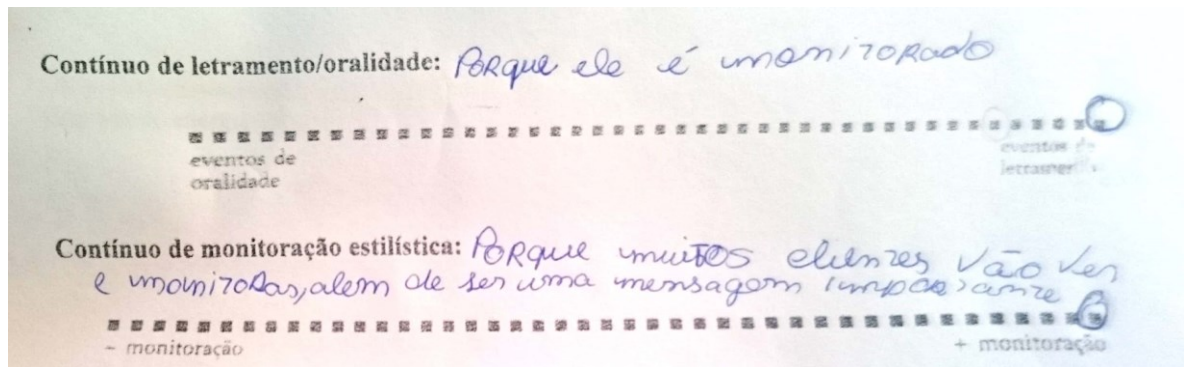 Contínuo de letramento/oralidade: Porque ele é monitorado
eventos de
oralidade
eventos de
Contínuo de monitoração estilística: Porque muitos vão ver
e monitorar, alem de ser uma mensagem importante
- monitoração
+ monitoração